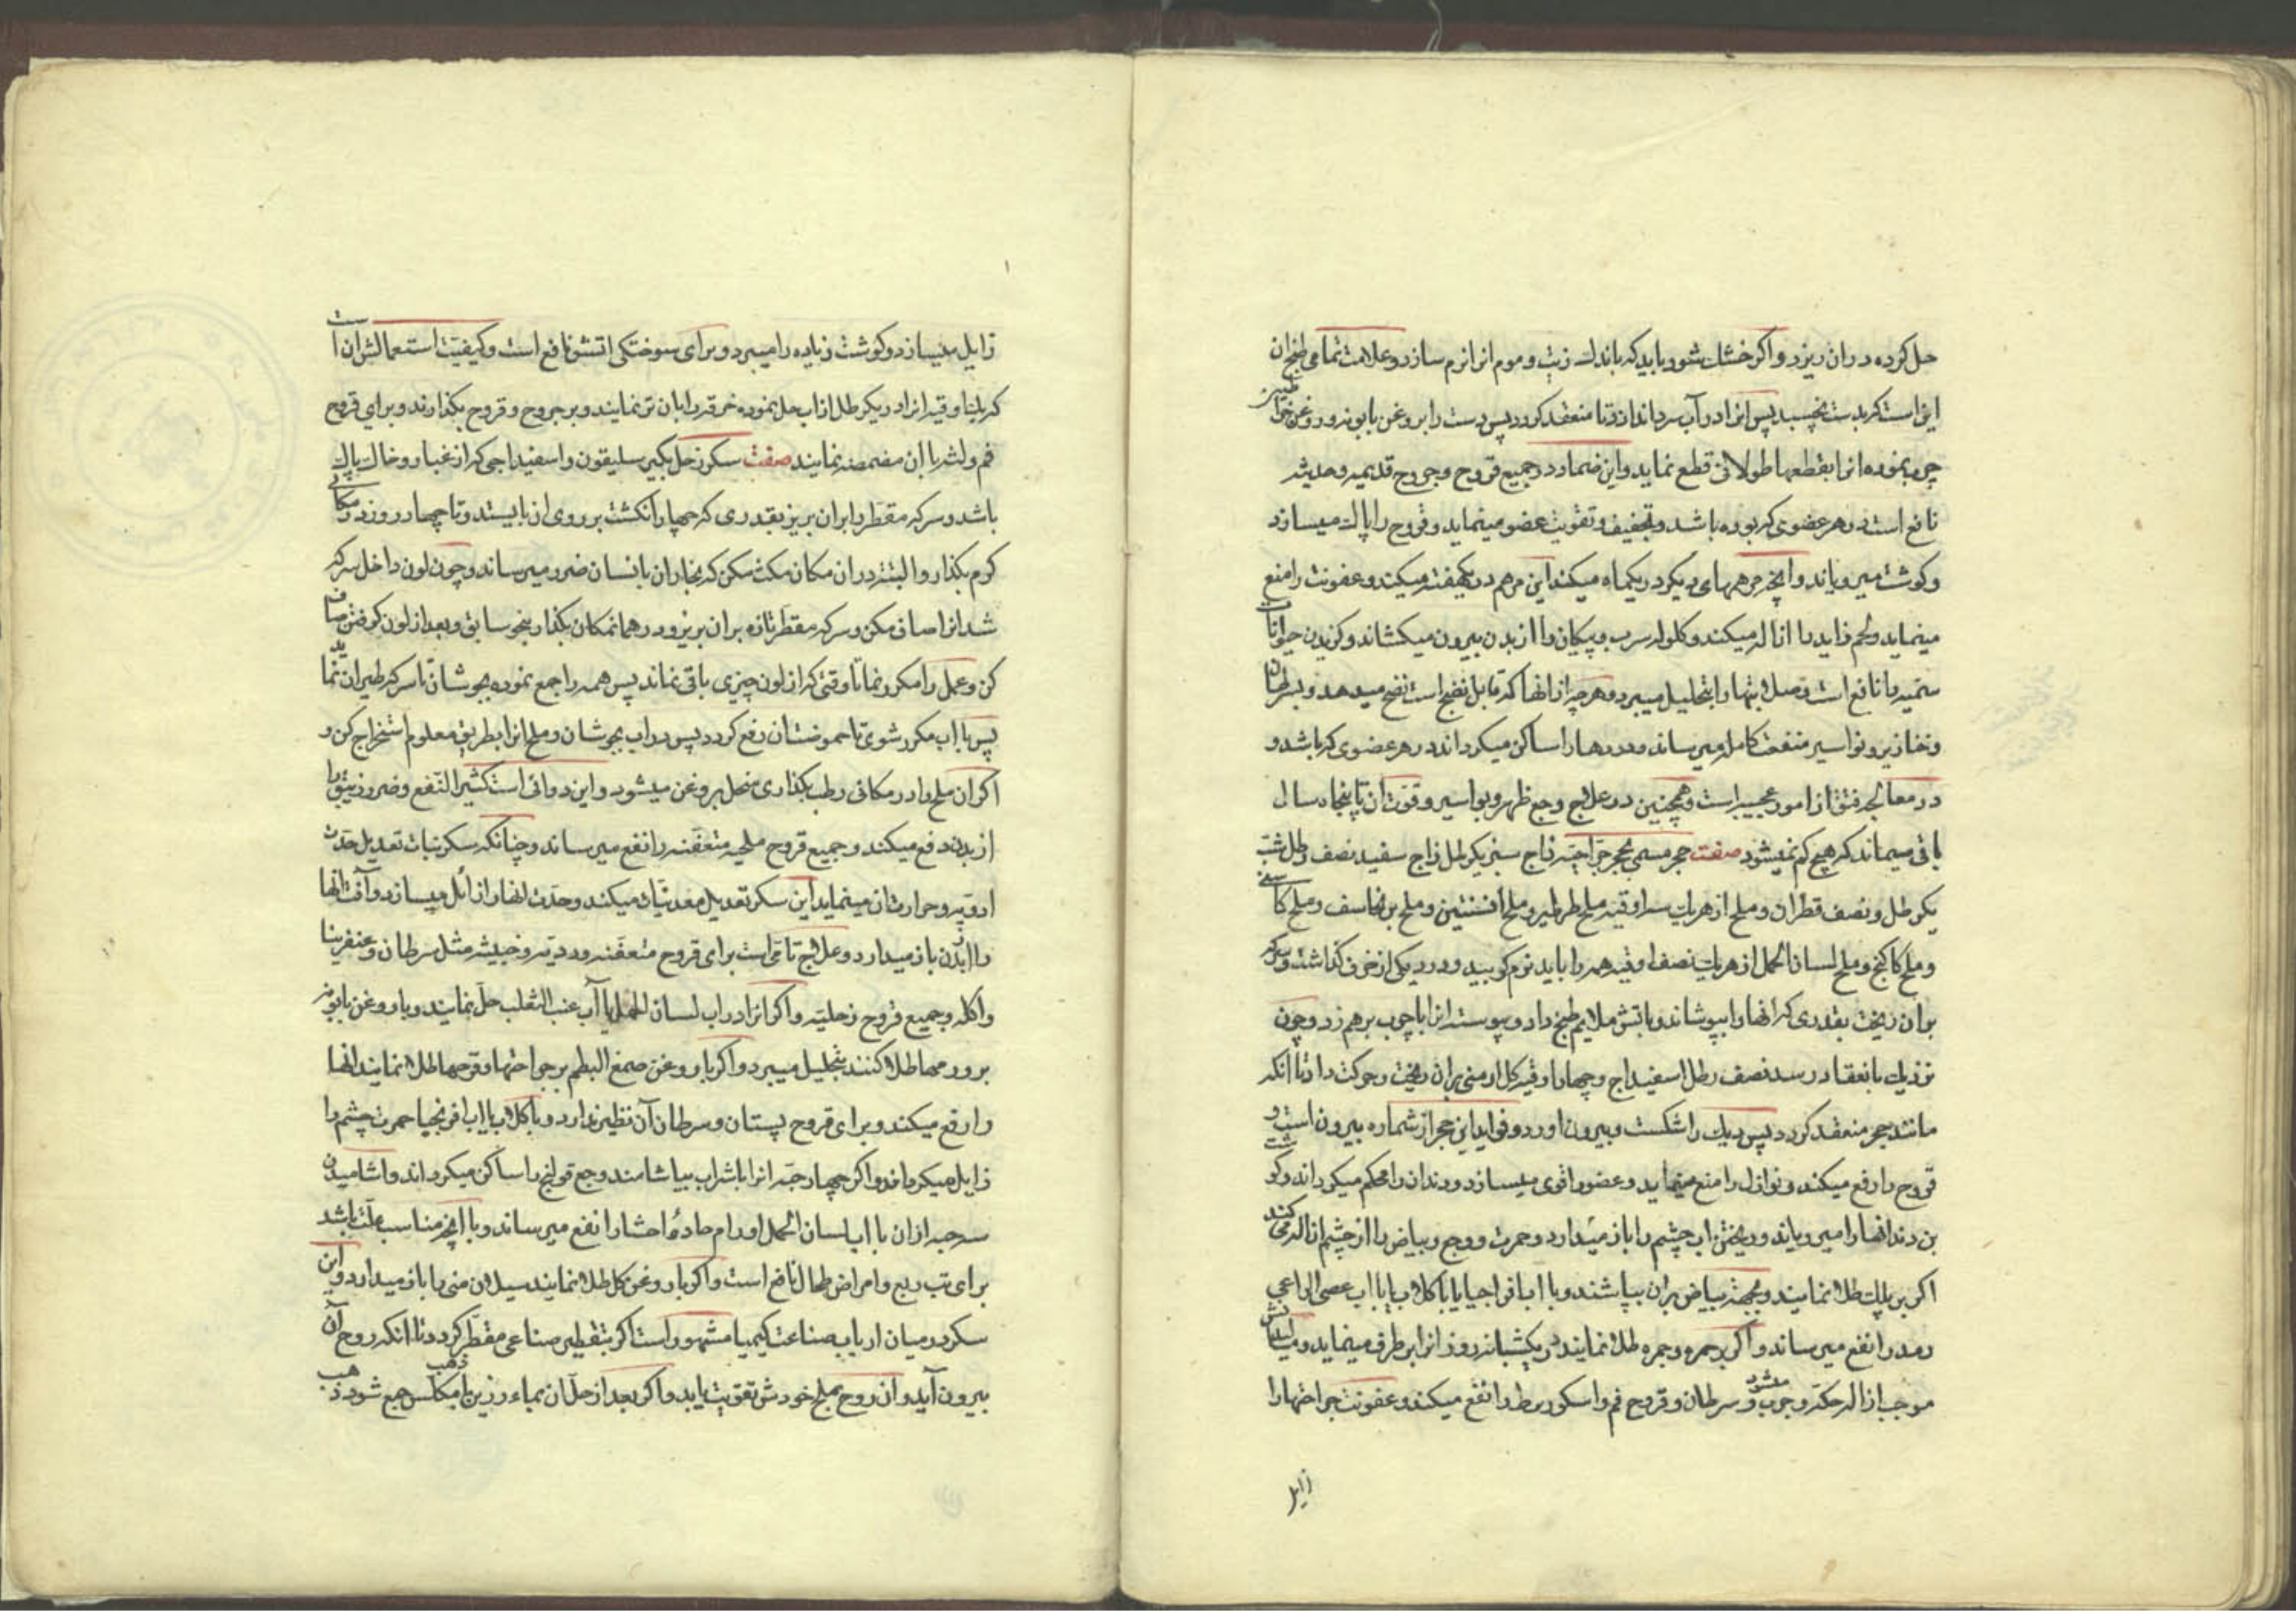 حل کرده در ان ریزد و اکر خشک شود باید که باندک زیت و موم انرا نرم سازد و علامت تمامی طبخ ان
اینست که بدست نچسبد پس انرا در آب سرد اندازد تا منعقد کردد پس دست را بروغن بابونه و روغن خراطین
چرب نموده انرا بقطعها طولانی قطع نماید و این ضماد در جمیع قروح و جروح قدیمه و حدیثه
نافع است در هر عضوی که بوده باشد و تجفیف و تقویت عضو مینماید و قروح را پاک میسازد
و کوشت میرویاند و انچه مرهمهای دیکر در یکماه میکند این مرهم در یکهفته میکند و عفونت را منع
مینماید و لحم زاید را ازاله میکند و کلوله سرب و پیکان را از بدن بیرون میکشاند و کزیدن حیوانات
سمیه را نافع است و صلابتها را بتحلیل میبرد و هر چه از انها که قابل نضج است نضج میدهد و سرطان
و خنازیر و نواسیر منفعت کامل میرساند و دردها را ساکن میکرداند در هر عضوی که باشد و
در معالجه فتق از امور عجیبه است و همچنین در علاج وجع ظهر و بواسیر و قوت ان تا پنجاه سال
باقی میماند که هیچ کم نمیشود صفت حجر مسمی بحجر جراحیه زاج سبز یکرطل زاج سفید نصف رطل شب
یکرطل و نصف قطران و ملح از هر یک سه اوقیه ملح طرطیر و ملح افسنتین و ملح برنجاسف و ملح کاسنی
و ملح کاکنج و ملح لسان الحمل از هر یک نصف اوقیه همه را باید نرم کوبید و در دیکی از خزف کذاشت و سرکه
بران ریخت بقدری که انها را بپوشاند و باتش ملایم طبخ داد و پیوسته انرا با چوب برهم زد و چون
نزدیک بانعقاد رسد نصف رطل اسفیداج و چهار اوقیه کل ارمنی بران ریخت و حرکت داد تا انکه
مانند حجر منعقد کردد پس دیک را شکست و بیرون اورد و فواید این حجر از شماره بیرون است و
قروح را رفع میکند و نوازل را منع مینماید و عضو را قوی میسازد و دندان را محکم میکرداند و کوشت
بن دندانها را میرویاند و ریختن اب چشم را باز میدارد و حمرت و وجع و بیاض را از چشم ازاله میکند
اکر بر پلک طلا نمایند و بجهته بیاض بران بپاشند و با اب افراجیا یا با کلاب یا با اب عصی الراعی
رمد را نفع میرساند و اکر بر حمره و جمره طلا نمایند در یکشبانه روز انرا برطرف مینماید و پاشیدنش
موجب ازاله حکه و جرب میشود و سرطان و قروح فم و اسکوربطا را نفع میکند و عفونت جراحتها را
زایل
زایل میسازد و کوشت زیاده را میبرد و برای سوختکی اتش نافع است و کیفیت استعمالش ان است
که یکاوقیه انرا در یکرطل از اب حل نموده خرقه را بان تر نمایند و بر جروح و قروح بکذارند و برای قروح
فم و لثه با ان مضمضه نمایند صفت سکر زحل بکیر سلیقون و اسفیداجی که از غبار و خاک پاک
باشد و سرکه مقطر را بران بریز بقدری که چهار انکشت بر روی ان بایستد و تا چهار روز در مکانی
کرم بکذار و البته در ان مکان مکث مکن که بخار ان بانسان ضرر میرساند و چون لون داخل سرکه
شد انرا صاف کن و سرکه مقطر تازه بران بریز و در همان مکان بکذار بنحو سابق و بعد از لون کرفتن صاف
کن و عمل را مکرر نما تا وقتی که از لون چیزی باقی نماند پس همه را جمع نموده بجوشان تا سرکه طیران نماید
پس با اب مکرر شوی تا حموضت ان رفع کردد پس در اب بجوشان و ملح انرا بطریق معلوم استخراج کن و
اکر ان ملح را در مکانی رطب بکذاری منحل بروغن میشود و این دوائی است کثیر النفع و ضرر زیبق را
از بدن دفع میکند و جمیع قروح ملحیه متعفنه را نفع میرساند و چنانکه سکر نبات تعدیل حدت
ادویه و حرارت ان مینماید این سکر تعدیل معدنیات میکند و حدت انها را زائل میسازد و آفت انها
را از بدن باز میدارد و علاج تامی است برای قروح متعفنه و ردیه و خبیثه مثل سرطان و غنغرینا
و اکله و جمیع قروح زحلیه و اکر انرا در اب لسان الحمل یا آب عنب الثعلب حل نمایند و با روغن بابونه
بر ورمها طلا کنند بتحلیل میبرد و اکر با روغن صمغ البطم بر جراحتها و قرحها طلا نمایند انها
را رفع میکند و برای قروح پستان و سرطان آن نظیر ندارد و با کلاب یا اب افرنجیا حمرت چشم را
زایل میکرداند و اکر چهار حبه انرا با شراب بیاشامند وجع قولنج را ساکن میکرداند و اشامیدن
سه حبه از ان با اب لسان الحمل اورام حاره احشا را نفع میرساند و با انچه مناسب علت باشد
برای تب ربع و امراض طحال نافع است و اکر با روغن کل طلا نمایند سیلان منی را باز میدارد و این
سکر در میان ارباب صناعت کیمیا مشهور است اکر بتقطیر صناعی مقطر کردد تا انکه روح آن
بیرون آید و ان روح بملح خودش تقویت یابد و اکر بعد از حل ان بماء رزین با مکلس ذهب جمع شود ذهب